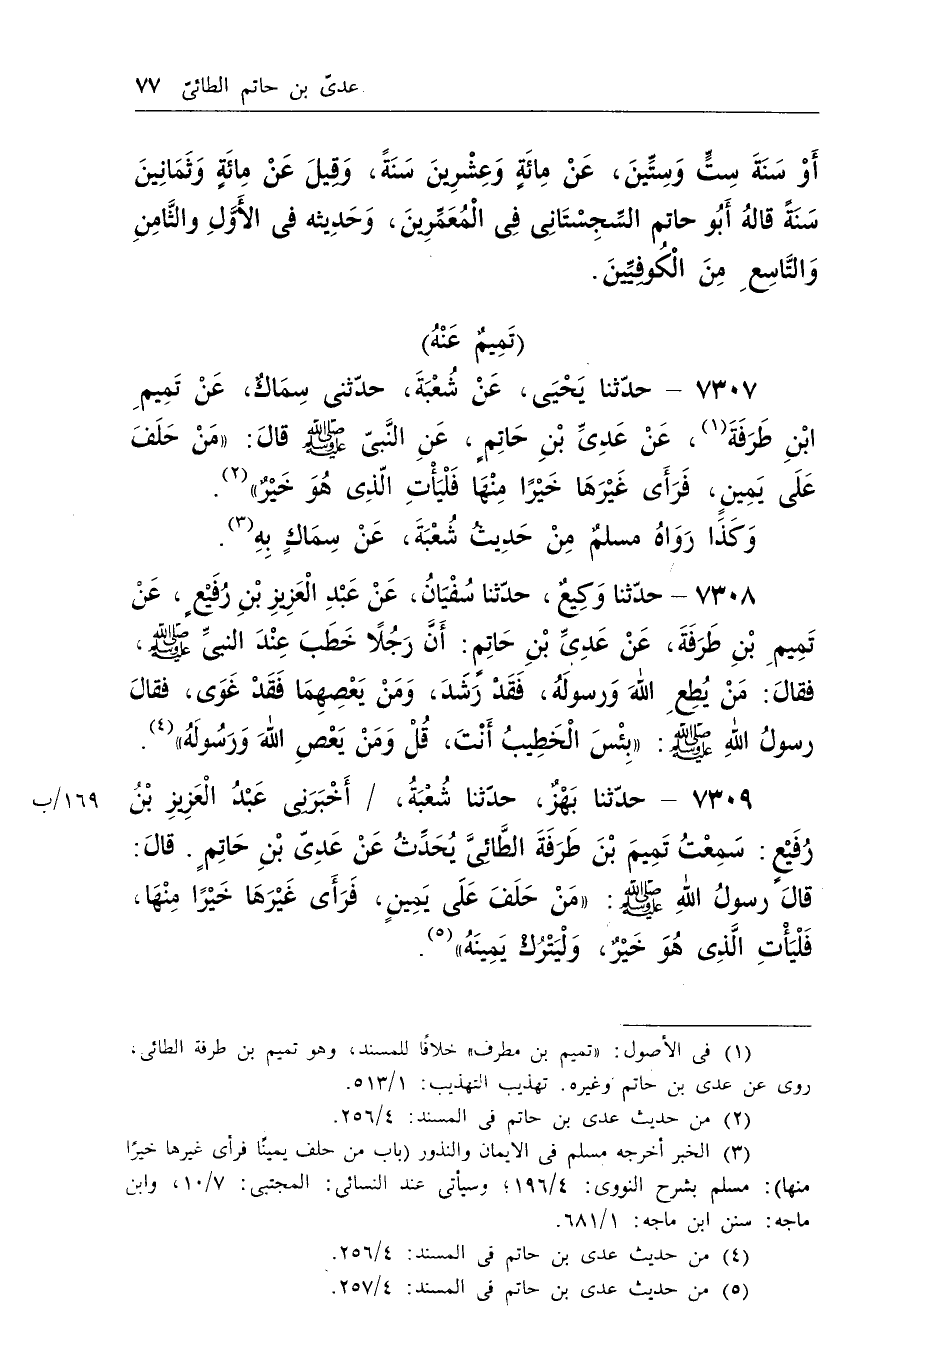 عدىّ بن حاتم الطائىّ ٧٧
أَوْ سَنَةَ سِتٍّ وَسِتِّينَ، عَنْ مِائَةٍ وَعِشْرِينَ سَنَةً، وَقِيلَ عَنْ مِائَةٍ وَثَمَانِينَ
سَنَةً قالهُ أَبُو حاتم السِّجِسْتَانِى فِى الْمُعَمِّرِينَ، وَحَدِيثه فى الأَوَّلِ والثَّامنِ
وَالتَّاسِعِ مِنَ الْكُوفِيِّينَ.
(تَمِيمٌ عَنْهُ)
٧٣٠٧ – حدّثنا يَحْيَى، عَنْ شُعْبَةَ، حدّثنى سِمَاكٌ، عَنْ تَمِيمِ
ابْنِ طَرَفَةَ(١)، عَنْ عَدِىِّ بْنِ حَاتِمٍ، عَنِ النَّبِىّ ﷺ قالَ: «مَنْ حَلَفَ
عَلَى يَمِينٍ، فَرَأَى غَيْرَهَا خَيْرًا مِنْهَا فَلْيَأْتِ الّذِى هُوَ خَيْرٌ»(٢).
وَكَذَا رَوَاهُ مسلمٌ مِنْ حَدِيثُ شُعْبَةَ، عَنْ سِمَاكٍ بِهِ(٣).
٧٣٠٨ – حدّثنا وَكِيعٌ، حدّثنا سُفْيَانُ، عَنْ عَبْدِ الْعَزِيزِ بْنِ رُفَيْعٍ، عَنْ
تَمِيمِ بْنِ طَرَفَةَ، عَنْ عَدِىِّ بْنِ حَاتِمٍ: أَنَّ رَجُلًا خَطَبَ عِنْدَ النبىِّ ﷺ،
فقالَ: مَنْ يُطِعِ اللهَ وَرسولَهُ، فَقَدْ رَشَدَ، وَمَنْ يَعْصِهِمَا فَقَدْ غَوَى، فقالَ
رسولُ اللهِ ﷺ: «بِئْسَ الْخَطِيبُ أَنْتَ، قُلْ وَمَنْ يَعْصِ اللهَ وَرَسُولَهُ»(٤).
٧٣٠٩ – حدّثنا بَهْزٌ، حدّثنا شُعْبَةُ، / أَخْبَرَنِى عَبْدُ الْعَزِيزِ بْنُ ١٦٩/ب
رُفَيْعٍ: سَمِعْتُ تَمِيمَ بْنَ طَرَفَةَ الطَّائِىَّ يُحَدِّثُ عَنْ عَدِىّ بْنِ حَاتِمٍ. قالَ:
قالَ رسولُ اللهِ ﷺ: «مَنْ حَلَفَ عَلَى يَمِينٍ، فَرَأَى غَيْرَهَا خَيْرًا مِنْهَا،
فَلْيَأْتِ الَّذِى هُوَ خَيْرٌ، وَلْيَتْرُكْ يَمِينَهُ»(٥).
(١) فى الأصول: «تميم بن مطرف» خلافًا للمسند، وهو تميم بن طرفة الطائى،
روى عن عدى بن حاتم وغيره. تهذيب التهذيب: ٥١٣/١.
(٢) من حديث عدى بن حاتم فى المسند: ٢٥٦/٤.
(٣) الخبر أخرجه مسلم فى الايمان والنذور (باب من حلف يمينًا فرأى غيرها خيرًا
منها): مسلم بشرح النووى: ١٩٦/٤؛ وسيأتى عند النسائى: المجتبى: ١٠/٧، وابن
ماجه: سنن ابن ماجه: ٦٨١/١.
(٤) من حديث عدى بن حاتم فى المسند: ٢٥٦/٤.
(٥) من حديث عدى بن حاتم فى المسند: ٢٥٧/٤.